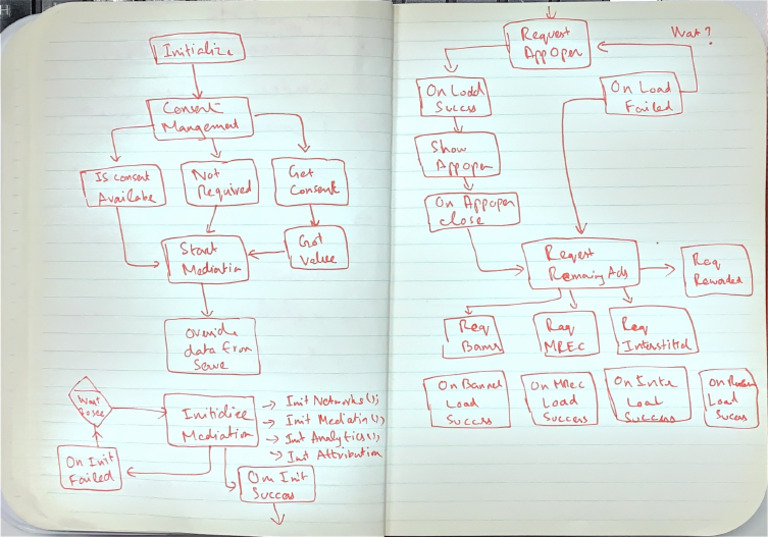 Initialize
Consent
Management
Is consent
Available
Not
Required
Get
Consent
Start
Mediation
Got
Value
Override
data from
Serve
Wait
Initialize
Mediation
Init Networks();
Init Mediatin();
Init Analytics();
Init Attribution
On Init
Failed
On Init
Success
Request
AppOpen
Wat?
On Load
Success
On Load
Failed
Show
AppOpen
On Appopen
close
Request
Remaining Ads
Req
Rewarded
Req
Banner
Req
MREC
Req
Interstitial
On Banner
Load
Success
On MRec
Load
Success
On Inter
Load
Success
On
Load
Sucess